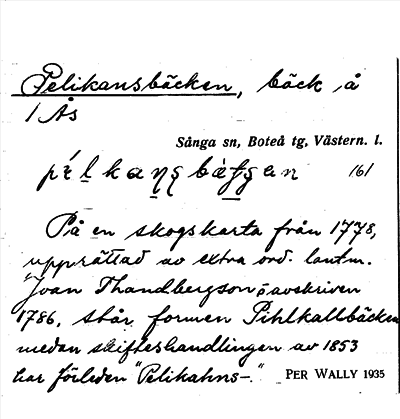 Pelikansbäcken, bäck å
1 Ås
Sånga sn, Boteå tg, Västern. l.
161
På en skogskarta från 1778,
upprättad av extra ord. lantm.
Joan Thandbergson, avskriven
1786, står formen Pihlkallbäcken
medan skifteshandlingen av 1853
har förleden "Pelikahns-."
PER WALLY 1935